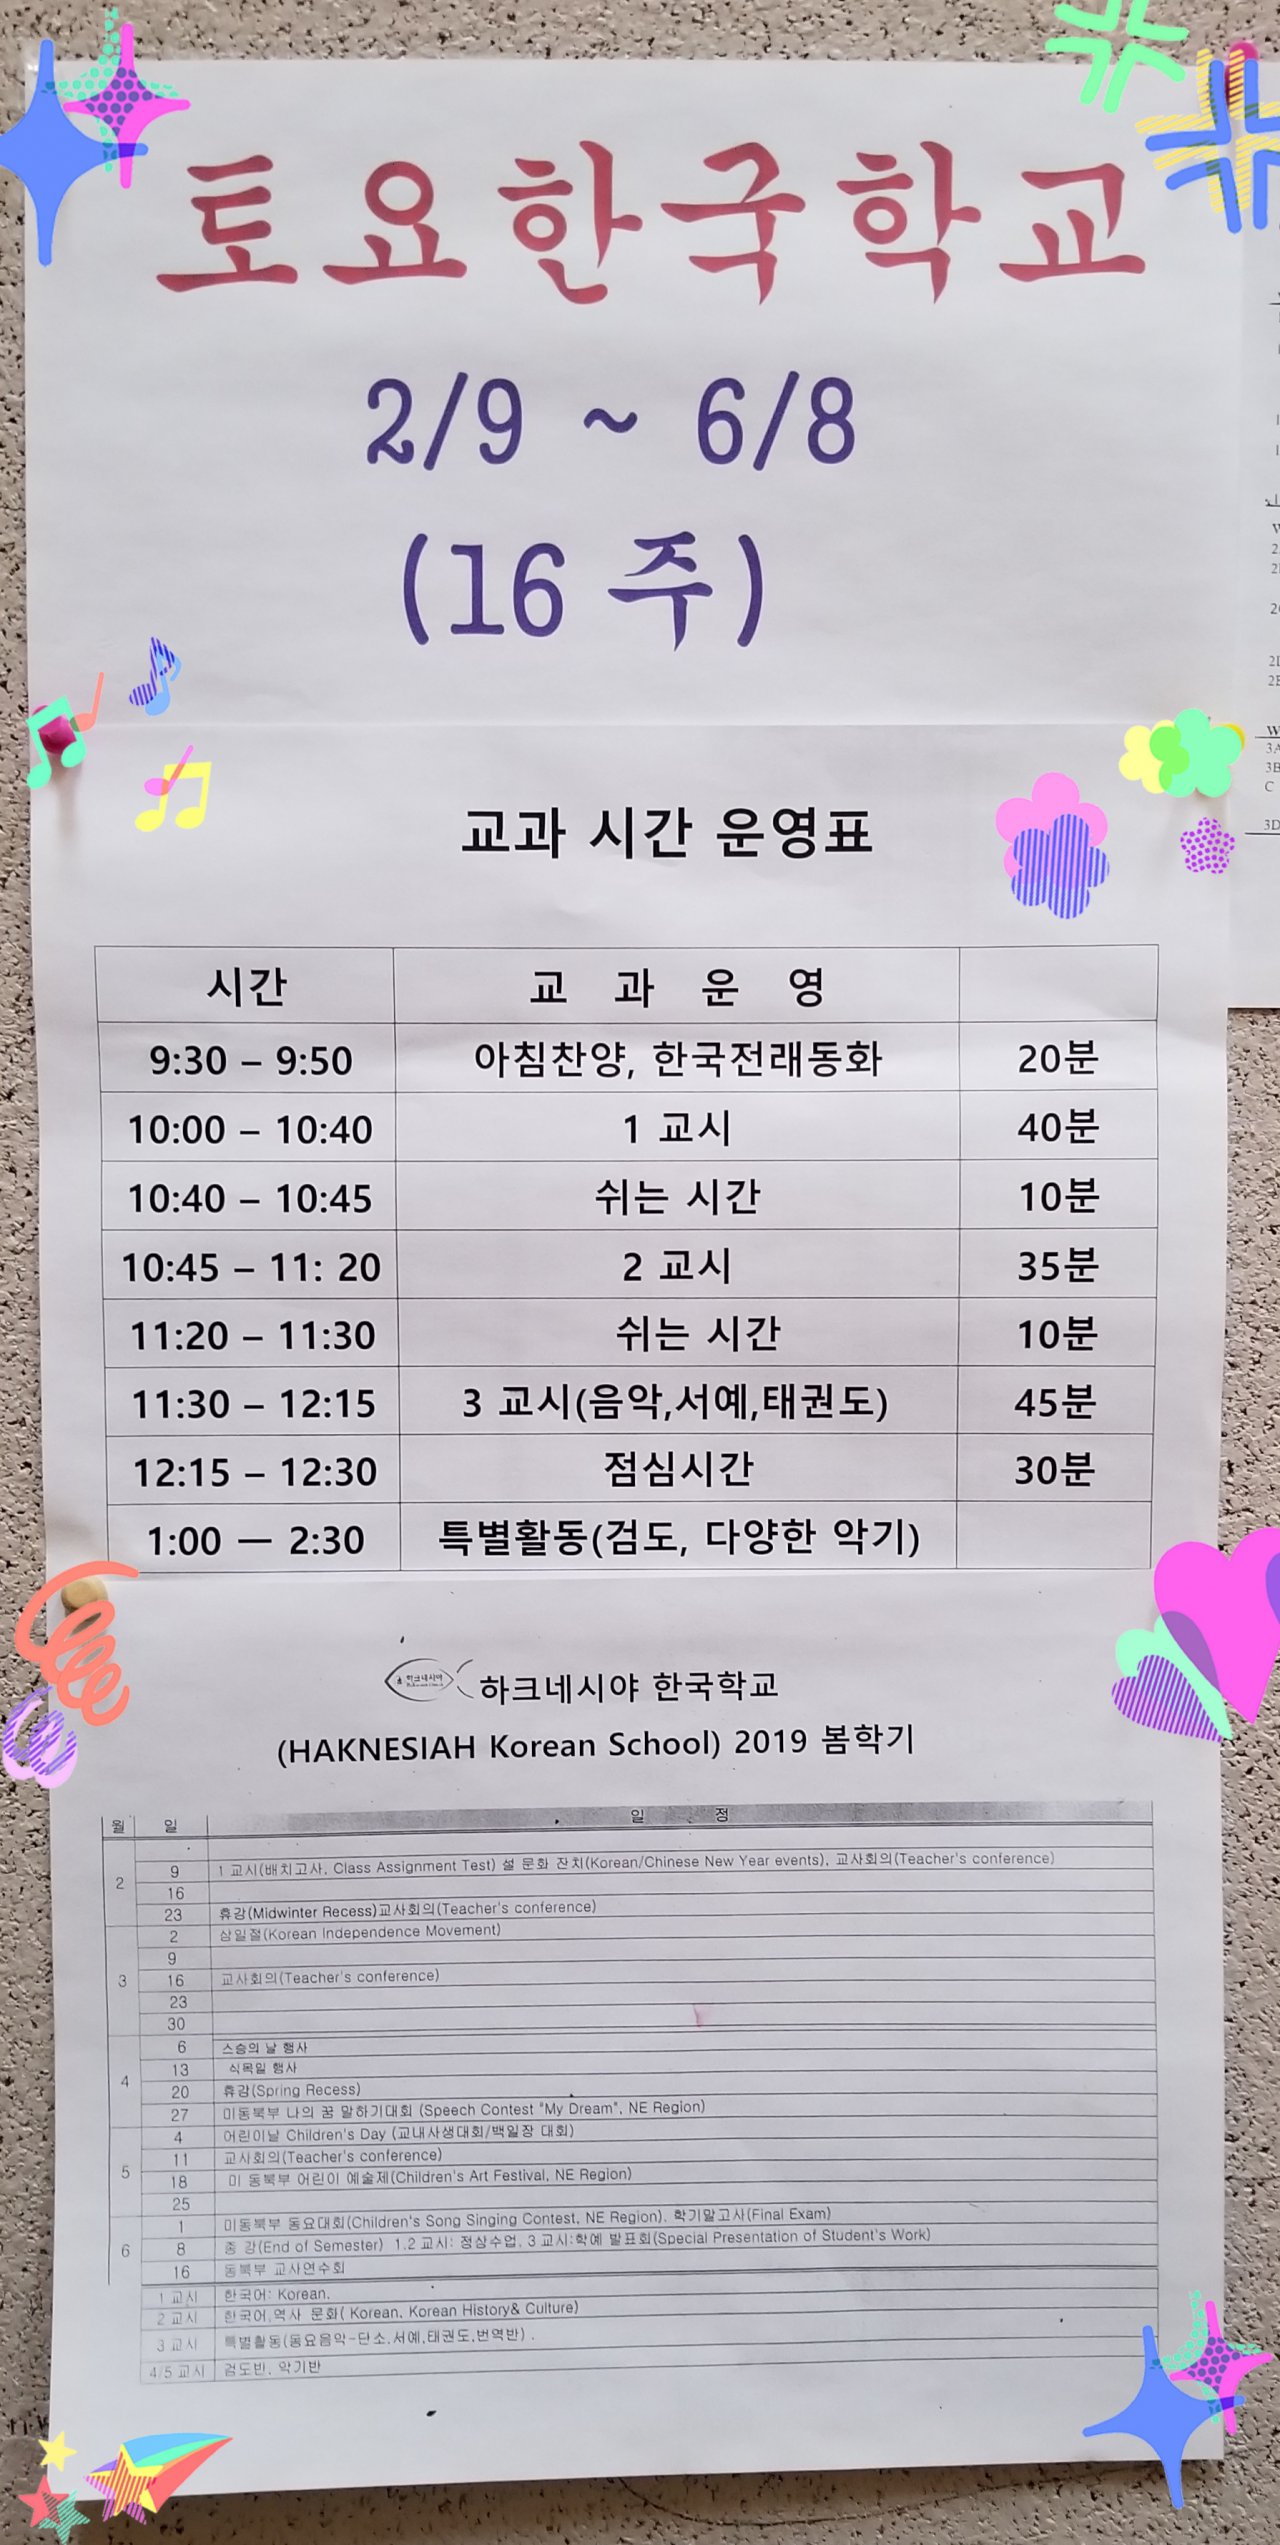 토요한국학교
2/9 ~ 6/8
(16 주)
교과 시간 운영표
시간 교 과 운 영
9:30 – 9:50 아침찬양, 한국전래동화 20분
10:00 – 10:40 1 교시 40분
10:40 – 10:45 쉬는 시간 10분
10:45 – 11: 20 2 교시 35분
11:20 – 11:30 쉬는 시간 10분
11:30 – 12:15 3 교시(음악,서예,태권도) 45분
12:15 – 12:30 점심시간 30분
1:00 — 2:30 특별활동(검도, 다양한 악기)
하크네시야 하크네시야 한국학교
(HAKNESIAH Korean School) 2019 봄학기
월 일 일 정
2 9 1 교시(배치고사, Class Assignment Test) 설 문화 잔치(Korean/Chinese New Year events), 교사회의(Teacher's conference)
16
23 휴강(Midwinter Recess)교사회의(Teacher's conference)
3 2 삼일절(Korean Independence Movement)
9
16 교사회의(Teacher's conference)
23
30
4 6 스승의 날 행사
13 식목일 행사
20 휴강(Spring Recess)
27 미동북부 나의 꿈 말하기대회 (Speech Contest "My Dream", NE Region)
5 4 어린이날 Children's Day (교내사생대회/백일장 대회)
11 교사회의(Teacher's conference)
18 미 동북부 어린이 예술제(Children's Art Festival, NE Region)
25
6 1 미동북부 동요대회(Children's Song Singing Contest, NE Region), 학기말고사(Final Exam)
8 종 강(End of Semester) 1.2 교시: 정상수업, 3 교시:학예 발표회(Special Presentation of Student's Work)
16 동북부 교사연수회
1 교시 한국어: Korean.
2 교시 한국어,역사 문화( Korean, Korean History& Culture)
3 교시 특별활동(동요음악-단소,서예,태권도,번역반) .
4/5 교시 검도반, 악기반
W
3A
3B
C
3D